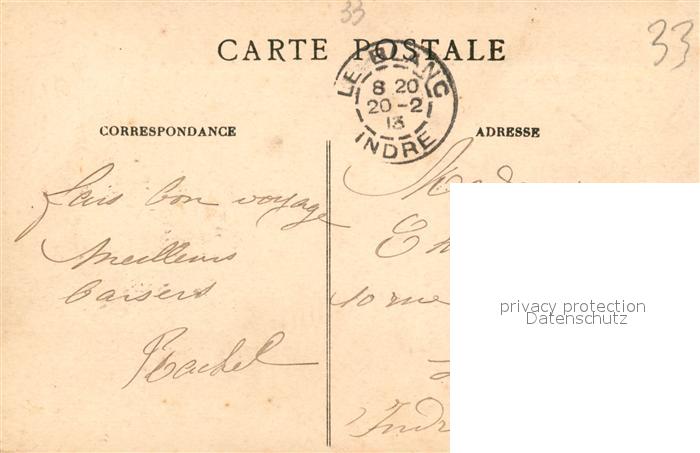 33
33
CARTE POSTALE
LE BLANC
8 20
20-2
13
INDRE
CORRESPONDANCE
ADRESSE
fais bon voyage
Meilleurs
baisers
Rachel
10 rue
privacy protection
Datenschutz